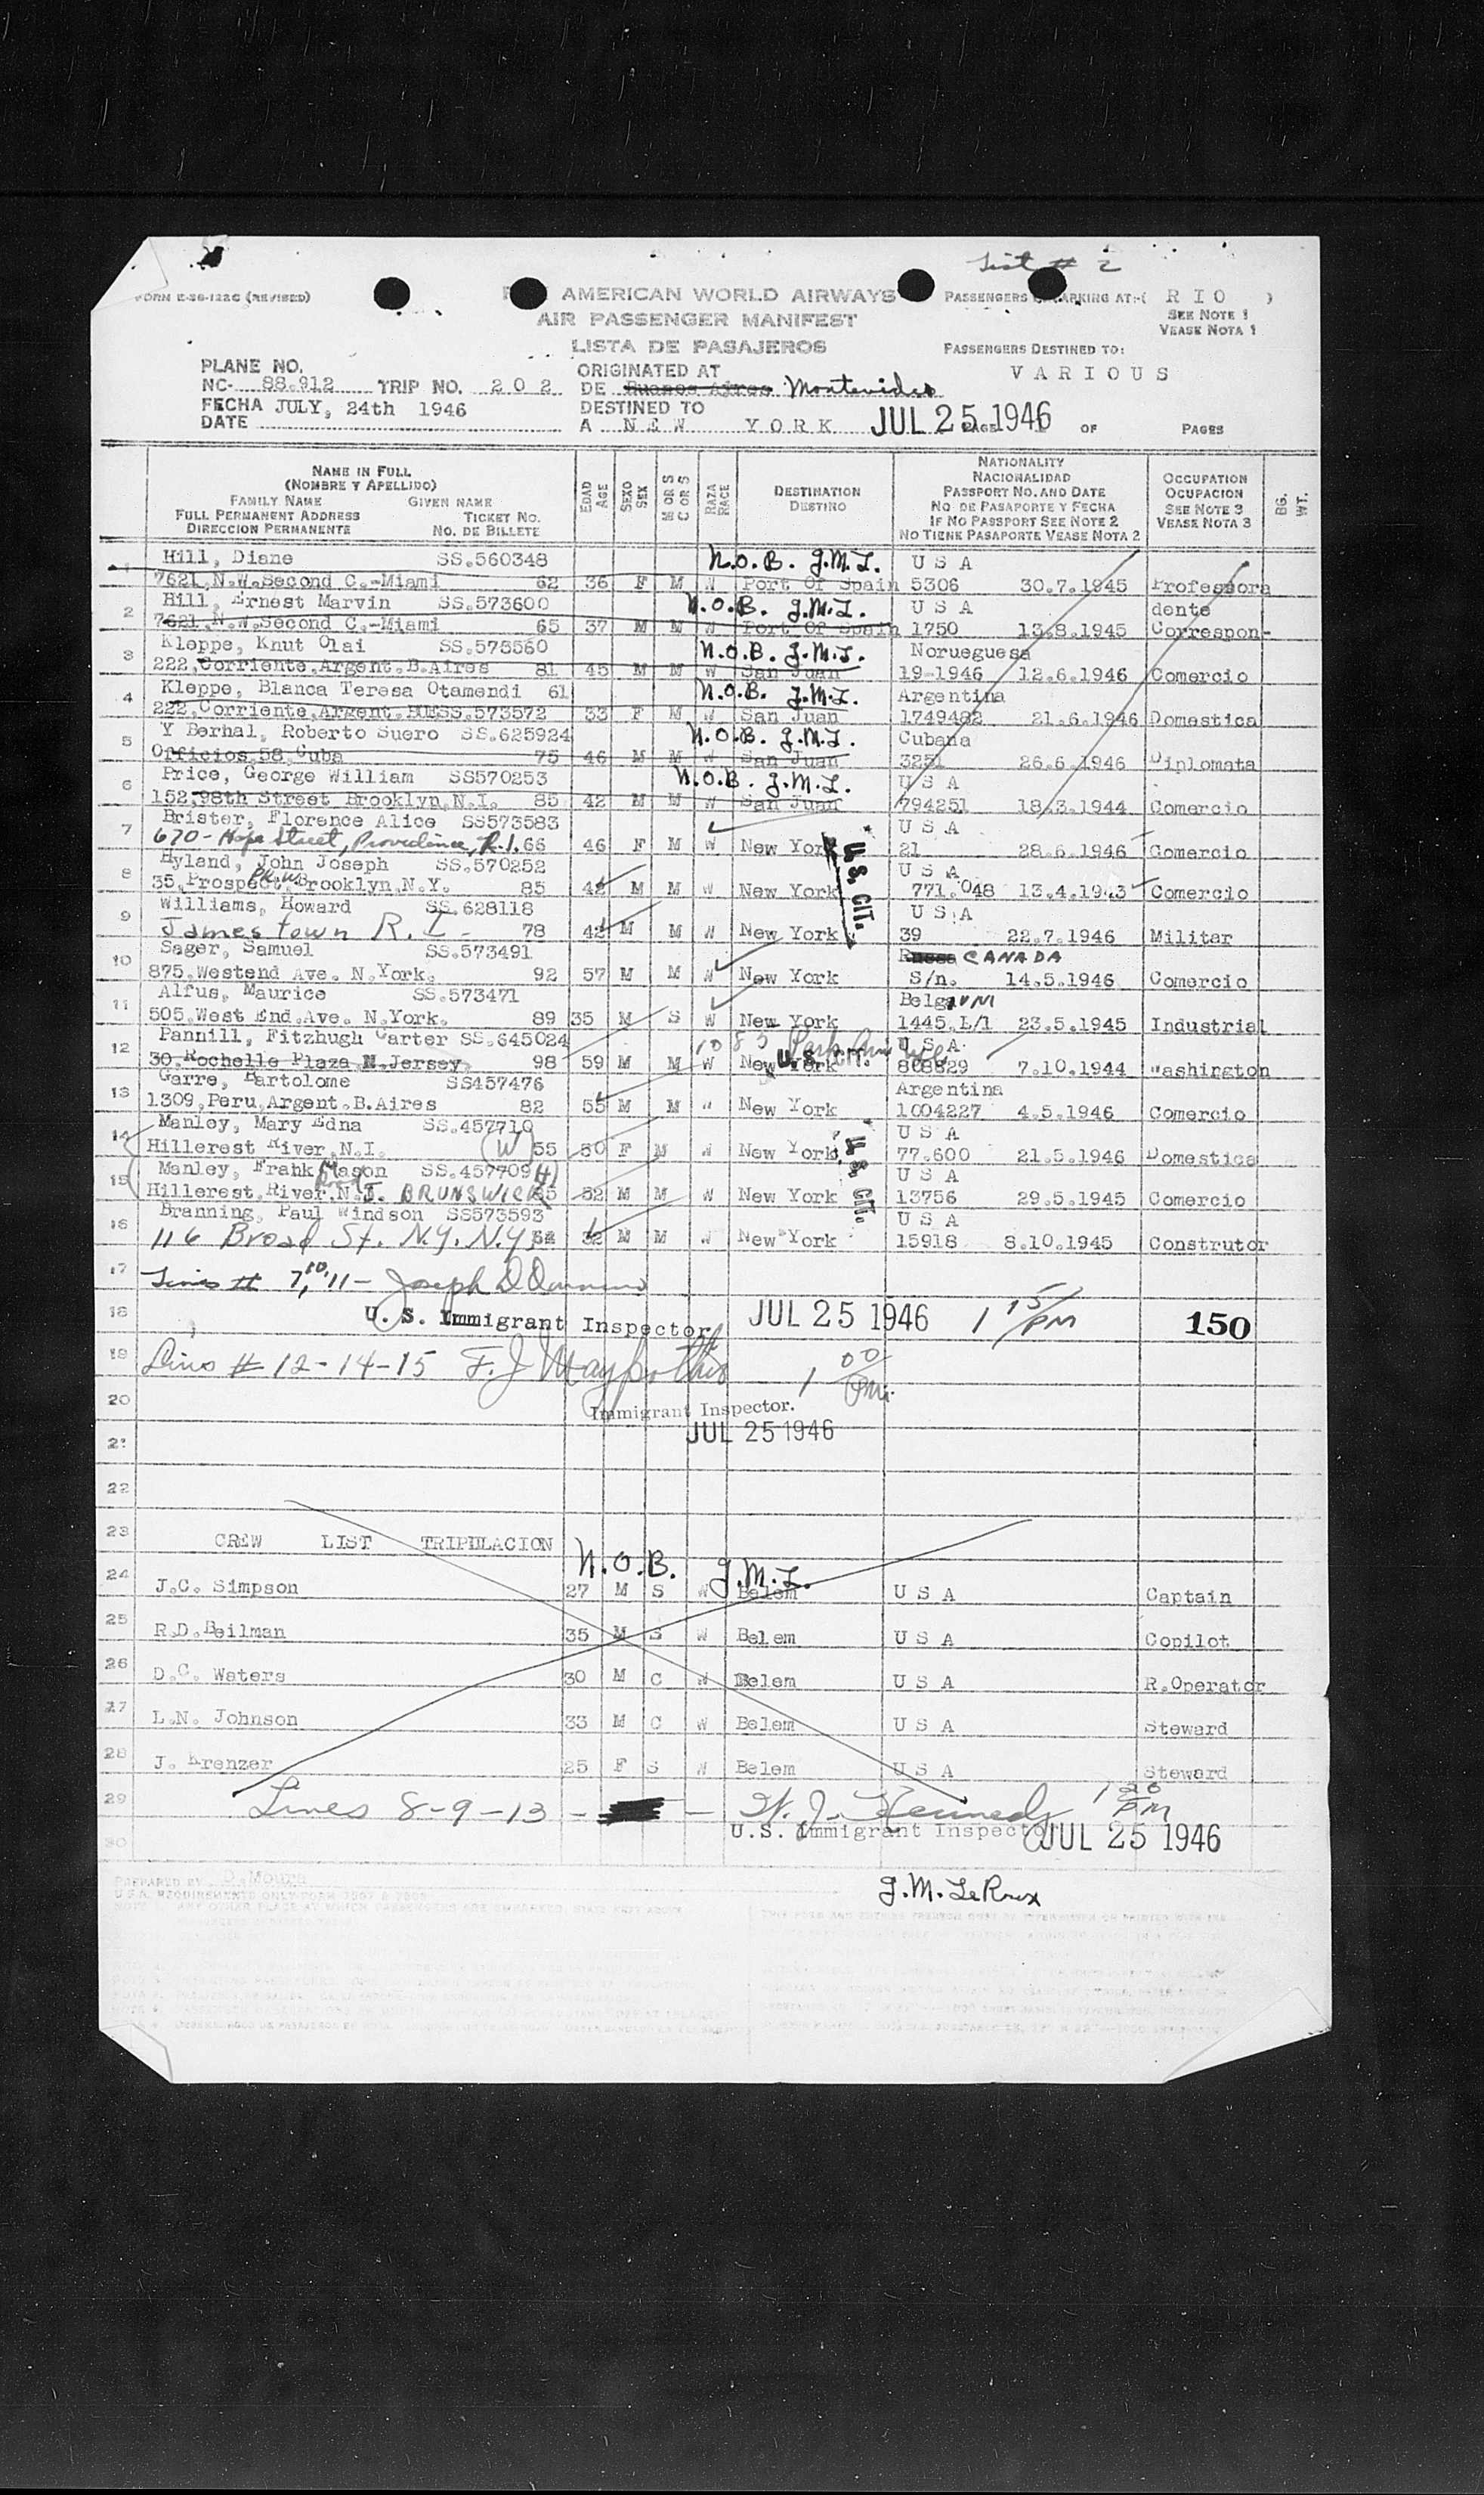 List # 2
FORM E-36-122C (REVISED)
AMERICAN WORLD AIRWAYS
PASSENGERS EMBARKING AT:( R I O )
AIR PASSENGER MANIFEST
SEE NOTE 1
VEASE NOTA 1
LISTA DE PASAJEROS
PASSENGERS DESTINED TO:
V A R I O U S
PLANE NO.
NC- 88.912 TRIP NO. 2 0 2
ORIGINATED AT
DE Buenos Aires Montevideo
FECHA JULY, 24th 1946
DATE
DESTINED TO
A N E W Y O R K JUL 25 1946 PAGE 1 OF PAGES
NAME IN FULL
(NOMBRE Y APELLIDO)
FAMILY NAME GIVEN NAME
FULL PERMANENT ADDRESS TICKET NO.
DIRECCION PERMANENTE NO. DE BILLETE
EDAD AGE
SEXO SEX
M OR S C OR S
RAZA RACE
DESTINATION DESTINO
NATIONALITY
NACIONALIDAD
PASSPORT NO. AND DATE
NO. DE PASAPORTE Y FECHA
IF NO PASSPORT SEE NOTE 2
NO TIENE PASAPORTE VEASE NOTA 2
OCCUPATION
OCUPACION
SEE NOTE 3
VEASE NOTA 3
BG. WT.
1 Hill, Diane SS.560348 N.O.B. J.M.L. U S A
7621,N.W.Second C.-Miami 62 36 F M W Port Of Spain 5306 30.7.1945 Professora
2 Hill, Ernest Marvin SS.573600 N.O.B. J.M.L. U S A dente
7621,N.W.Second C.-Miami 65 37 M M W Port Of Spain 1750 13.8.1945 Correspon-
3 Kleppe, Knut Olai SS.573560 N.O.B. J.M.L. Norueguesa
222,Corriente,Argent.B.Aires 81 45 M M W San Juan 19-1946 12.6.1946 Comercio
4 Kleppe, Blanca Teresa Otamendi 61 N.O.B. J.M.L. Argentina
222,Corriente,Argent.BUESS.573572 33 F M W San Juan 1749482 21.6.1946 Domestica
5 Y Berhal, Roberto Suero SS.625924 N.O.B. J.M.L. Cubana
Officios,58 Cuba 75 46 M M W San Juan 3251 26.6.1946 Diplomata
6 Price, George William SS570253 N.O.B. J.M.L. U S A
152,98th Street Brooklyn,N.I. 85 42 M M W San Juan 794251 18.3.1944 Comercio
7 Brister, Florence Alice SS573583 U S A
670 - Hope Street, Providence, R.I. 66 46 F M W New York 21 28.6.1946 Comercio
8 Hyland, John Joseph SS.570252 U S A
35,Prospect Pk. W Brooklyn,N.Y. 85 42 M M W New York 771.048 13.4.1943 Comercio
U.S. CIT.
9 Williams, Howard SS.628118 U S A
Jamestown R.I. 78 42 M M W New York 39 22.7.1946 Militar
10 Sager, Samuel SS.573491 Russa CANADA
875,Westend Ave. N.York. 92 57 M M W New York S/n. 14.5.1946 Comercio
11 Alfus, Maurice SS.573471 Belgium
505,West End.Ave. N.York. 89 35 M S W New York 1445.L/1 23.5.1945 Industrial
12 Pannill, Fitzhugh Carter SS.645024 Park Ave U S A
30,Rochelle Plaza N.Jersey 98 59 M M W New York U.S. CIT. 808829 7.10.1944 Washington
13 Garre, Bartolome SS457476 Argentina
1309,Peru,Argent.B.Aires 82 55 M M W New York 1004227 4.5.1946 Comercio
14 Manley, Mary Edna SS.457710 U S A
Hillerest River,N.I. (W) 55 50 F M W New York 77.600 21.5.1946 Domestica
U.S. CIT.
15 Manley, Frank Mason SS.457709 (H) U S A
Hillerest,River,N.J. BRUNSWICK 52 M M W New York 13756 29.5.1945 Comercio
16 Branning, Paul Windson SS573593 U S A
116 Broad St. N.Y. N.Y. 32 M M W New York 15918 8.10.1945 Construtor
17 Lines # 7, 10, 11 - Joseph D
18 U. S. Immigrant Inspector JUL 25 1946 1 15/PM 150
19 Lines # 12-14-15 F. J. 1 00/PM
20 Immigrant Inspector.
JUL 25 1946
21
22
23 CREW LIST TRIPULACION
N.O.B. J.M.L.
24 J.C. Simpson 27 M S W Belem U S A Captain
25 R.D.Beilman 35 M S W Belem U S A Copilot
26 D.C. Waters 30 M C W Belem U S A R.Operator
27 L.N. Johnson 33 M C W Belem U S A Steward
28 J. Krenzer 25 F S W Belem U S A Steward
29 Lines 8-9-13 - - W. J. Kennedy 1 20 PM
30 U.S. Immigrant Inspector JUL 25 1946
PREPARED BY D. Moura
J.M. LeRoux